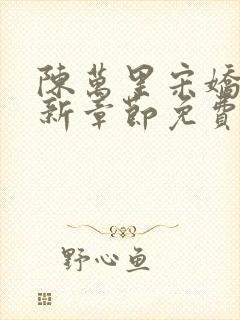 陳萬里宋嬌
新章節免費
野心鱼